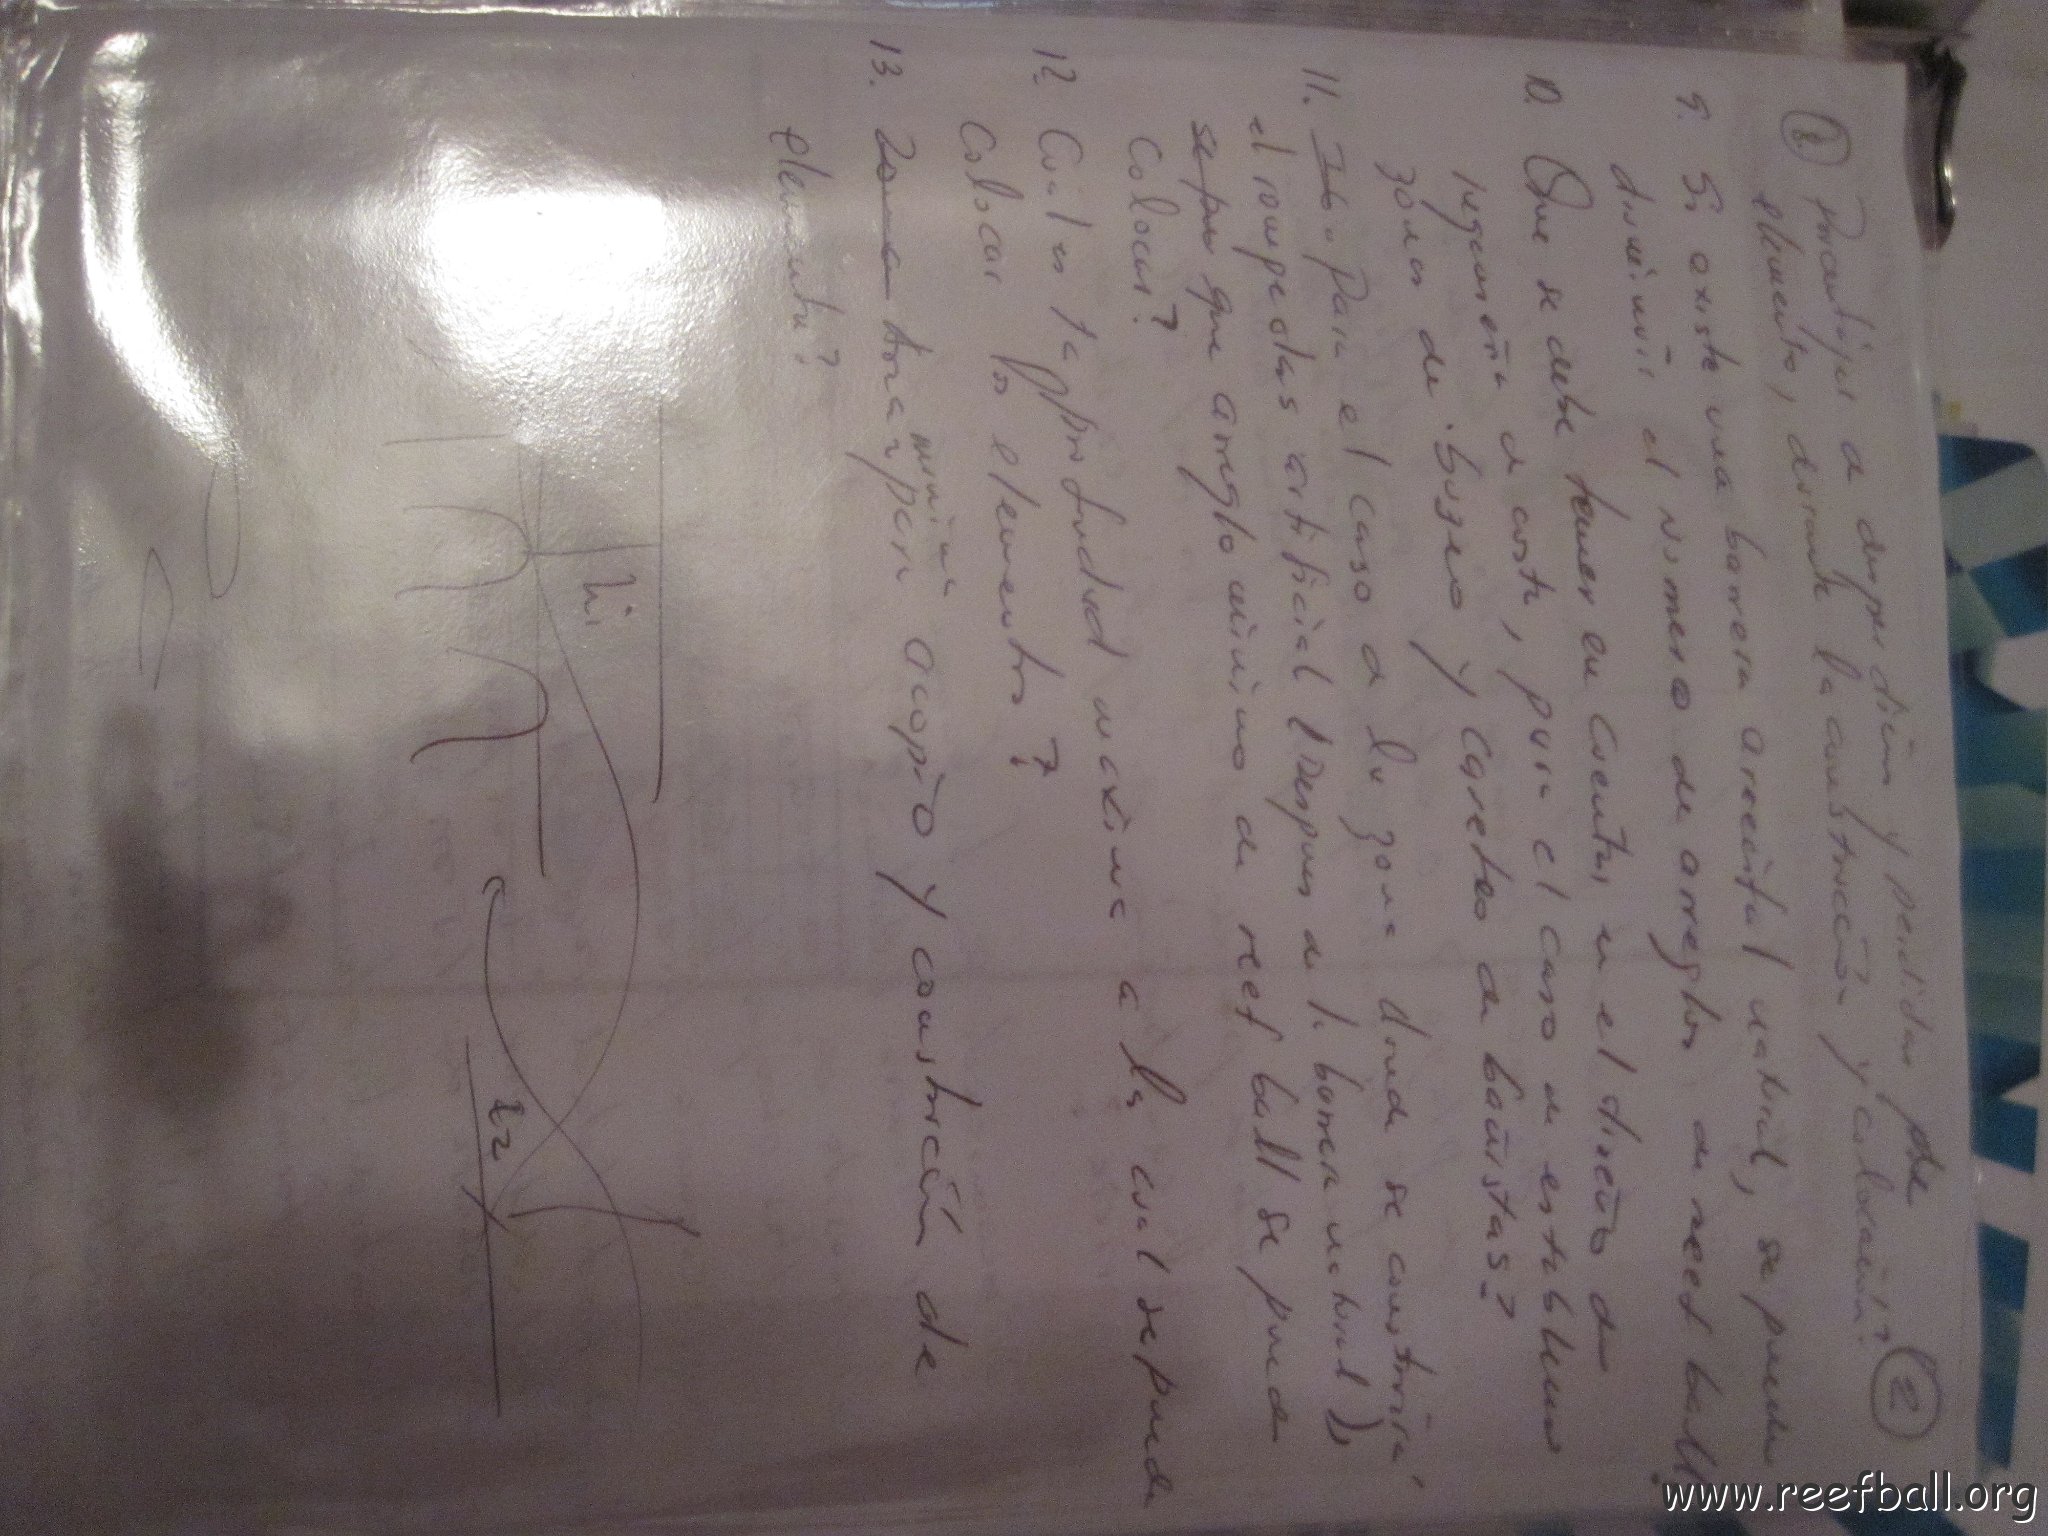 2
8. Porcentajes de desperdicios y perdidas por
elemento, durante la construcción y colocación?
9. Si existe una barrera arrecifal natural, se puede
disminuir el número de arreglos de reef ball.
10. Que se debe tener en cuenta, en el diseño de
a costa, para el caso de establecer
zonas de buseo y careteo de bañistas?
11. Para el caso de la zona donde se construirá
el rompeolas artificial (Despues de la barrera natural),
que arreglo mínimo de reef ball se puede
colocar?
12. Cual es la profundidad maxima a la cual se puede
colocar los elementos?
13. área mínima para acopio y construcción de
elementos?
hi
h2
www.reefball.org